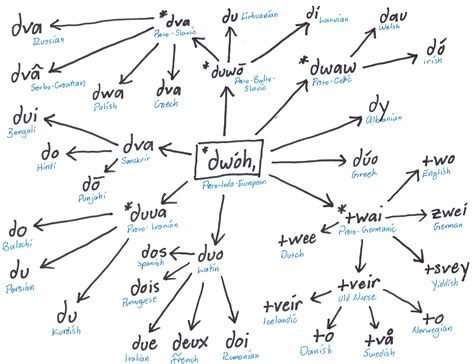 dva
Russian
*dva
Proto-Slavic
du
Lithuanian
di
Latvian
dau
Welsh
dvâ
Serbo-Croatian
dwa
Polish
dva
Czech
*duwō
Proto-Balto-
Slavic
*dwaw
Proto-Celtic
dó
irish
dui
Bengali
dva
Sanskrit
*dwóh₁
Proto-Indo-European
dy
Albanian
do
Hindi
dō
Punjabi
dúo
Greek
two
English
*duua
Proto-Iranian
*twai
Proto-Germanic
zwei
German
do
Balochi
dos
Spanish
duo
Latin
twee
Dutch
du
Persian
dois
Portugese
tveir
Old Norse
tsvey
Yiddish
du
Kurdish
tveir
Icelandic
to
Norwegian
due
Italian
deux
French
doi
Romanian
to
Danish
två
Swedish